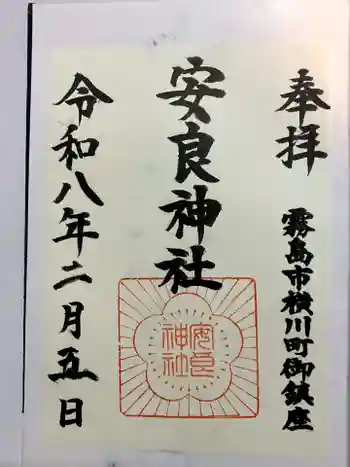 奉拝
霧島市横川町御鎮座
安良神社
安良神社
令和八年二月五日